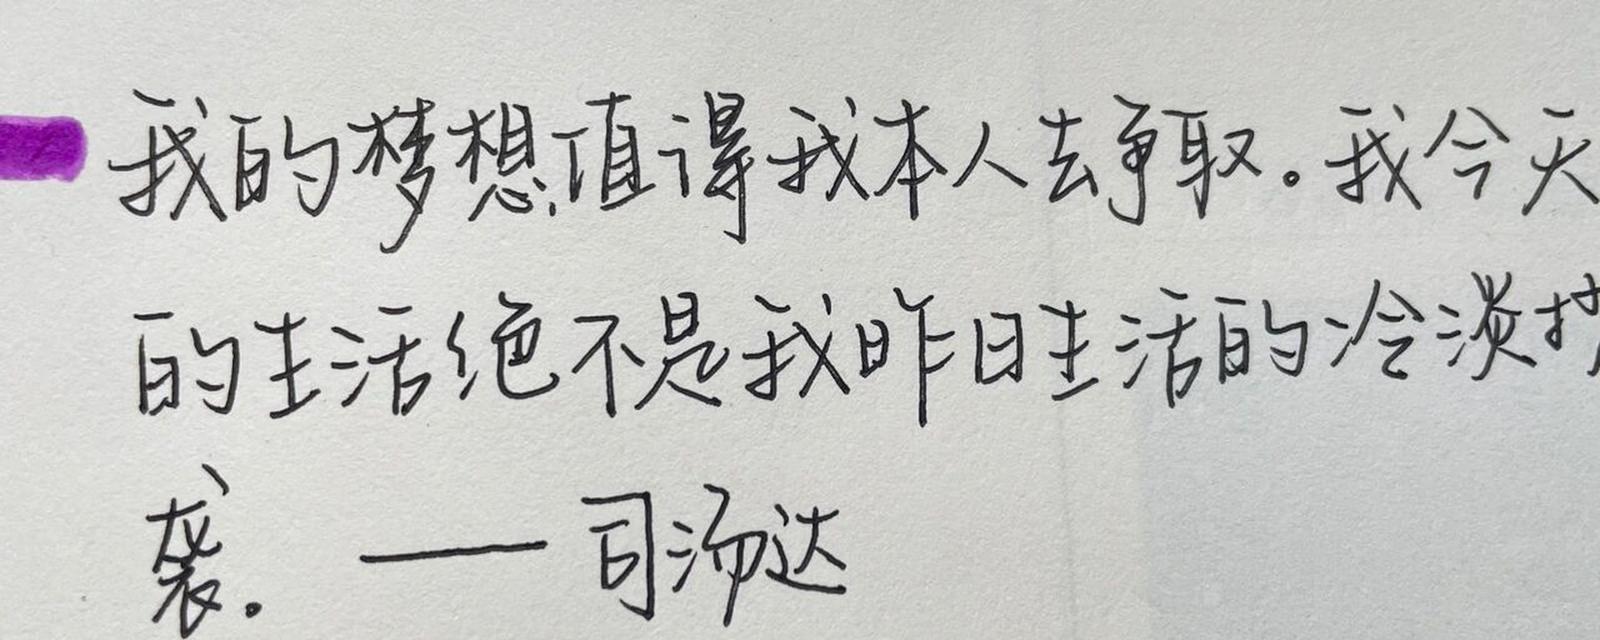 我的梦想,值得我本人去争取。我今天
的生活绝不是我昨日生活的冷淡抄
袭。——司汤达